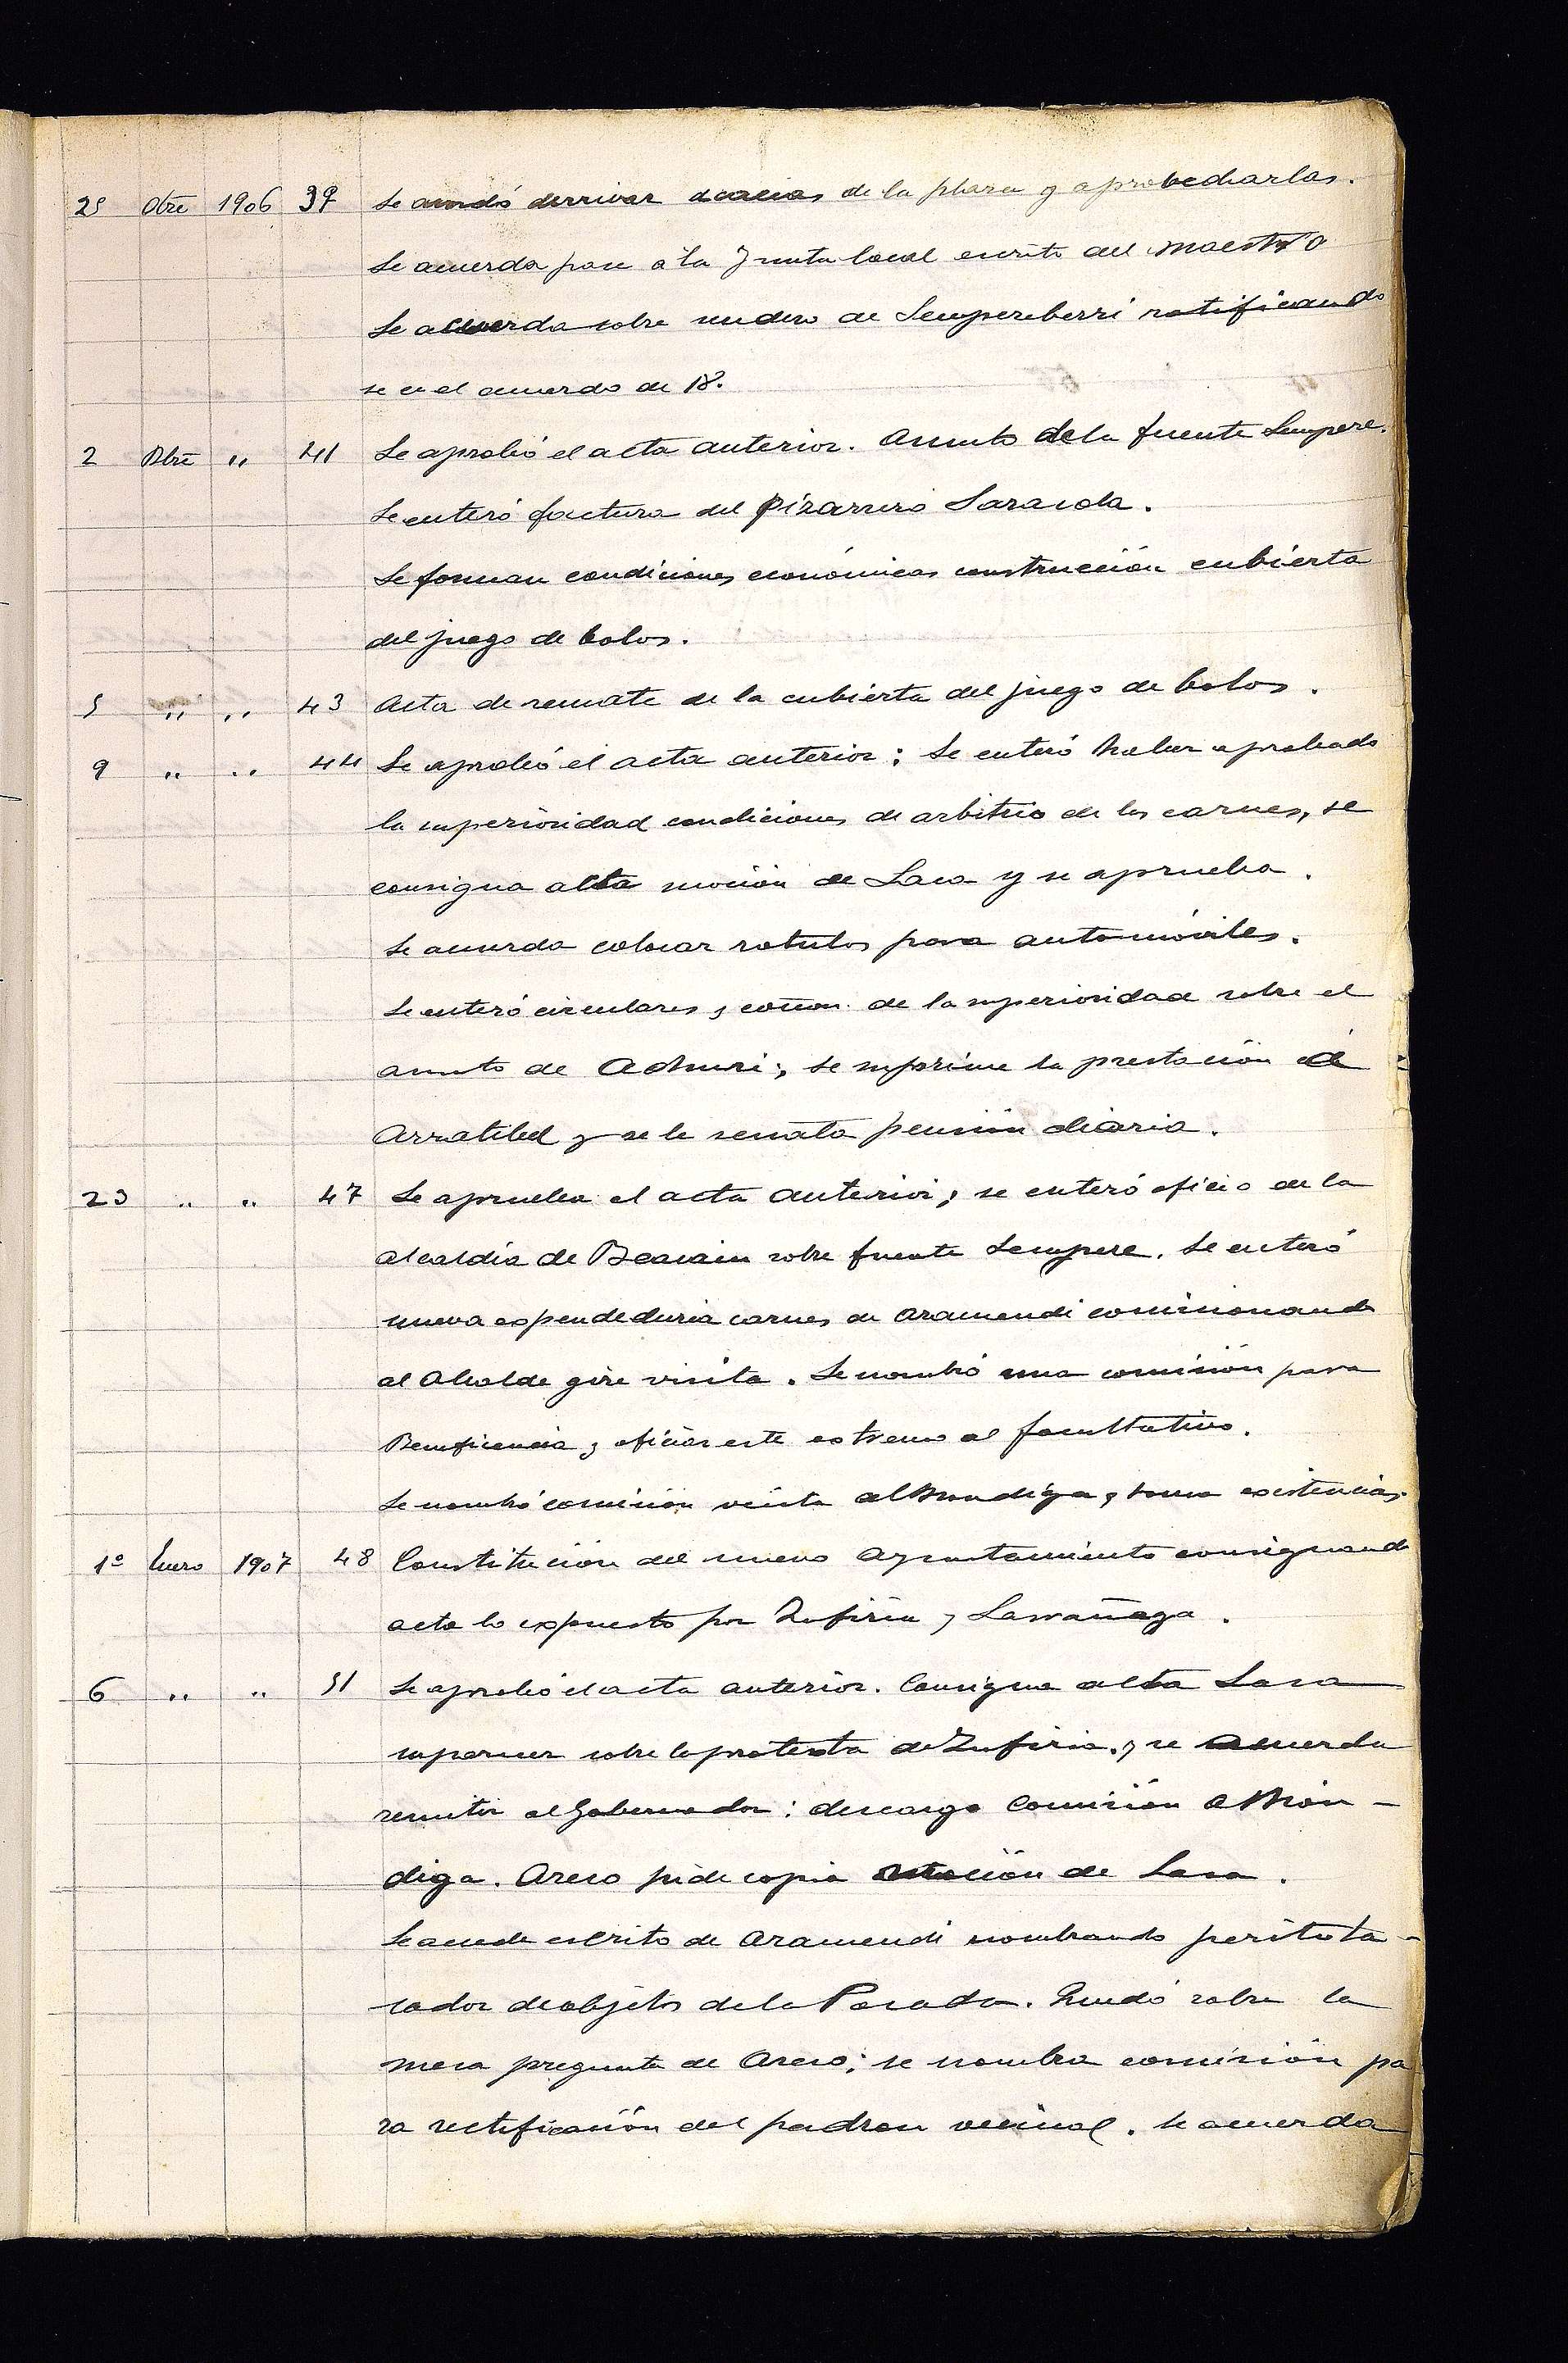 25 Obre 1906 39 Se acordó derrivar acacias de la plaza y aprobecharlas.
Se acuerda pase a la Junta local escrito del maestro
Se acuerda sobre sendero de Sempereberri ratificando
se en el acuerdo de 18.
2 Dbre " 41 Se aprobó el acta anterior. Asunto de la fuente Sempere.
Se enteró factura del pizarrero Sarasola.
Se forman condiciones económicas construcción cubierta
del juego de bolos.
5 " " 43 Acta de remate de la cubierta del juego de bolos.
9 " " 44 Se aprobó el acta anterior; Se enteró haber aprobado
la superioridad condiciones de arbitrio de las carnes, se
consigna alta moción de Lasa y se aprueba.
Se acuerda colocar rotulos para automóviles.
Se enteró circulares y comon. de la superioridad sobre el
asunto de Achurri; se suprime la prestación de
Arratibel y se le senala pensión diaria.
23 " " 47 Se aprueba el acta anterior; se enteró oficio de la
alcaldía de Beasain sobre fuente Sempere. Se enteró
nueva expendeduria carnes de Aramendi comisionando
al Alcalde gire visita. Se nombró una comisión para
Beneficencia y oficiar este extremo al facultativo.
Se nombró comisión visita alhondiga y toma existencias.
1º Enero 1907 48 Constitución del nuevo Ayuntamiento consignando
acta lo expuesto por Zufiria y Larrañaga.
6 " " 51 Se aprobó el acta anterior. Consigna alta Lasa
su parecer sobre la protesta de Zufiria, y se acuerda
remitir al Gobernador: descargo Comisión Alhón-
diga. Areso pide copia moción de Lasa.
Se accede escrito de Aramendi nombrando perito ta-
sador de objetos de la Posada. Quedó sobre la
mesa pregunta de Areso; se nombra comisión pa
ra rectificación del padron vecinal. Se acuerda